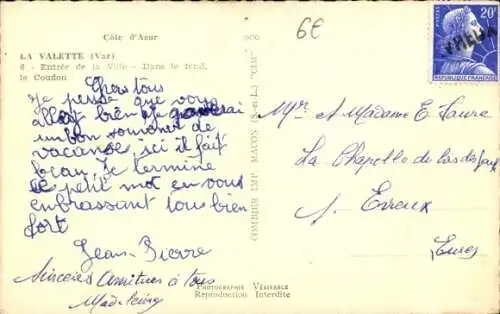 Côte d'Azur
LA VALETTE (Var)
6 - Entrée de la Ville - Dans le fond,
le Coudon
6€
20F
REPUBLIQUE FRANÇAISE
Chers tous
Je pense que vous
allez bien Je garderai
un bon souvenir de
vacance, ici il fait
beau, Je termine
ce petit mot en vous
embrassant tous bien
fort
Jean-Pierre
Sincères Amitiés à tous
Madeleine
COMBIER IMP. MACON (S.-et-L.) "CIM"
PHOTOGRAPHIE VÉRITABLE
Reproduction Interdite
Mr et Madame E. Faura
La Chapelle du
Evreux
Eure